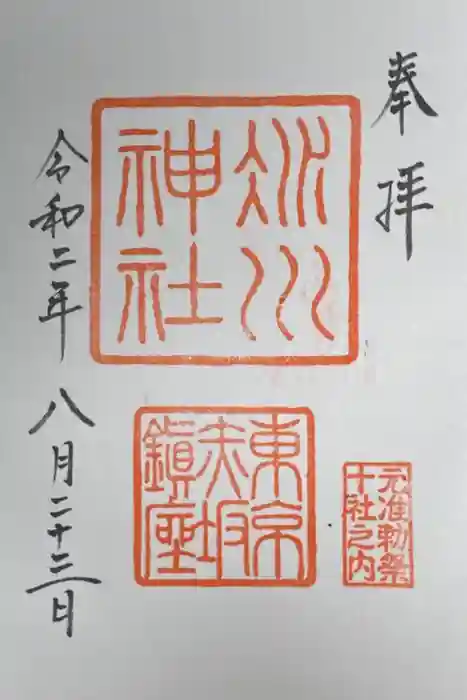 奉拝
氷川
神社
東京
赤坂
鎮座
元准勅祭
十社之内
令和二年八月二十二日